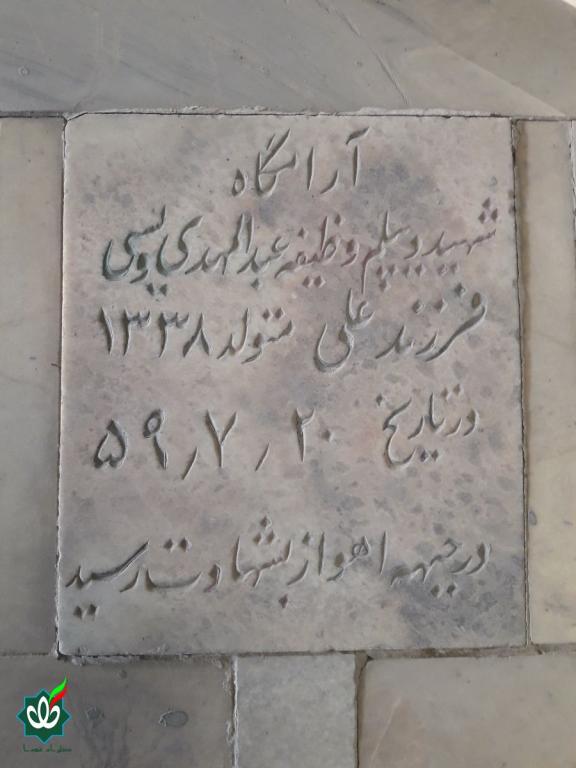 آرامگاه
شهید دیپلم وظیفه عبدالمهدی ویسی
فرزند علی متولد ۱۳۳۸
در تاریخ ۲۰ / ۷ / ۵۹
در جبهه اهواز بشهادت رسید